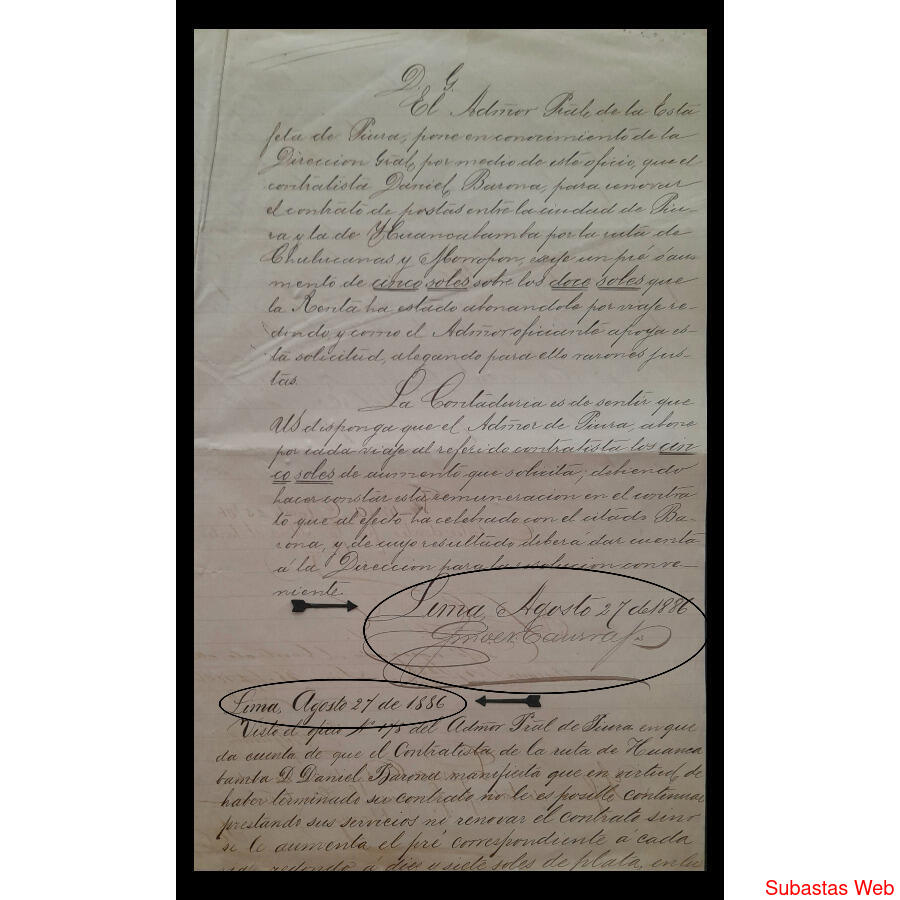 D. G.
El Admor Pral, de la Esta
feta de Piura, pone en conocimiento de la
Direccion Gral, por medio de este oficio, que el
contratista Daniel Barona, para renovar
el contrato de postas entre la ciudad de Piu-
ra y la de Huancabamba por la ruta de
Chulucanas y Morropon, exije un pré ó au
mento de cinco soles sobre los doce soles que
la Renta ha estado abonandole por viaje re-
dondo, y como el Admor oficiante apoya es-
ta solicitud, alegando para ello razones jus-
tas.
La Contaduria es de sentir que
US disponga que el Admor de Piura, abone
por cada viaje al referido contratista los cin
co soles de aumento que solicita; debiendo
hacer constar esta remuneracion en el contra
to que al efecto ha celebrado con el citado Ba-
rona, y de cuyo resultado deberá dar cuenta
á la Direccion para la resolucion conve-
niente.
Lima, Agosto 27 de 1886
Lima, Agosto 27 de 1886
Visto el oficio Nº 178 del Admor Pral de Piura en que
da cuenta de que el Contratista de la ruta de Huanca
bamba D. Daniel Barona manifiesta que en virtud, de
haber terminado su contrato no le es posible continuar
prestando sus servicios ni renovar el contrato sino
se le aumenta el pré correspondiente á cada
viaje redondo á diez y siete soles de plata, en lu
Subastas Web